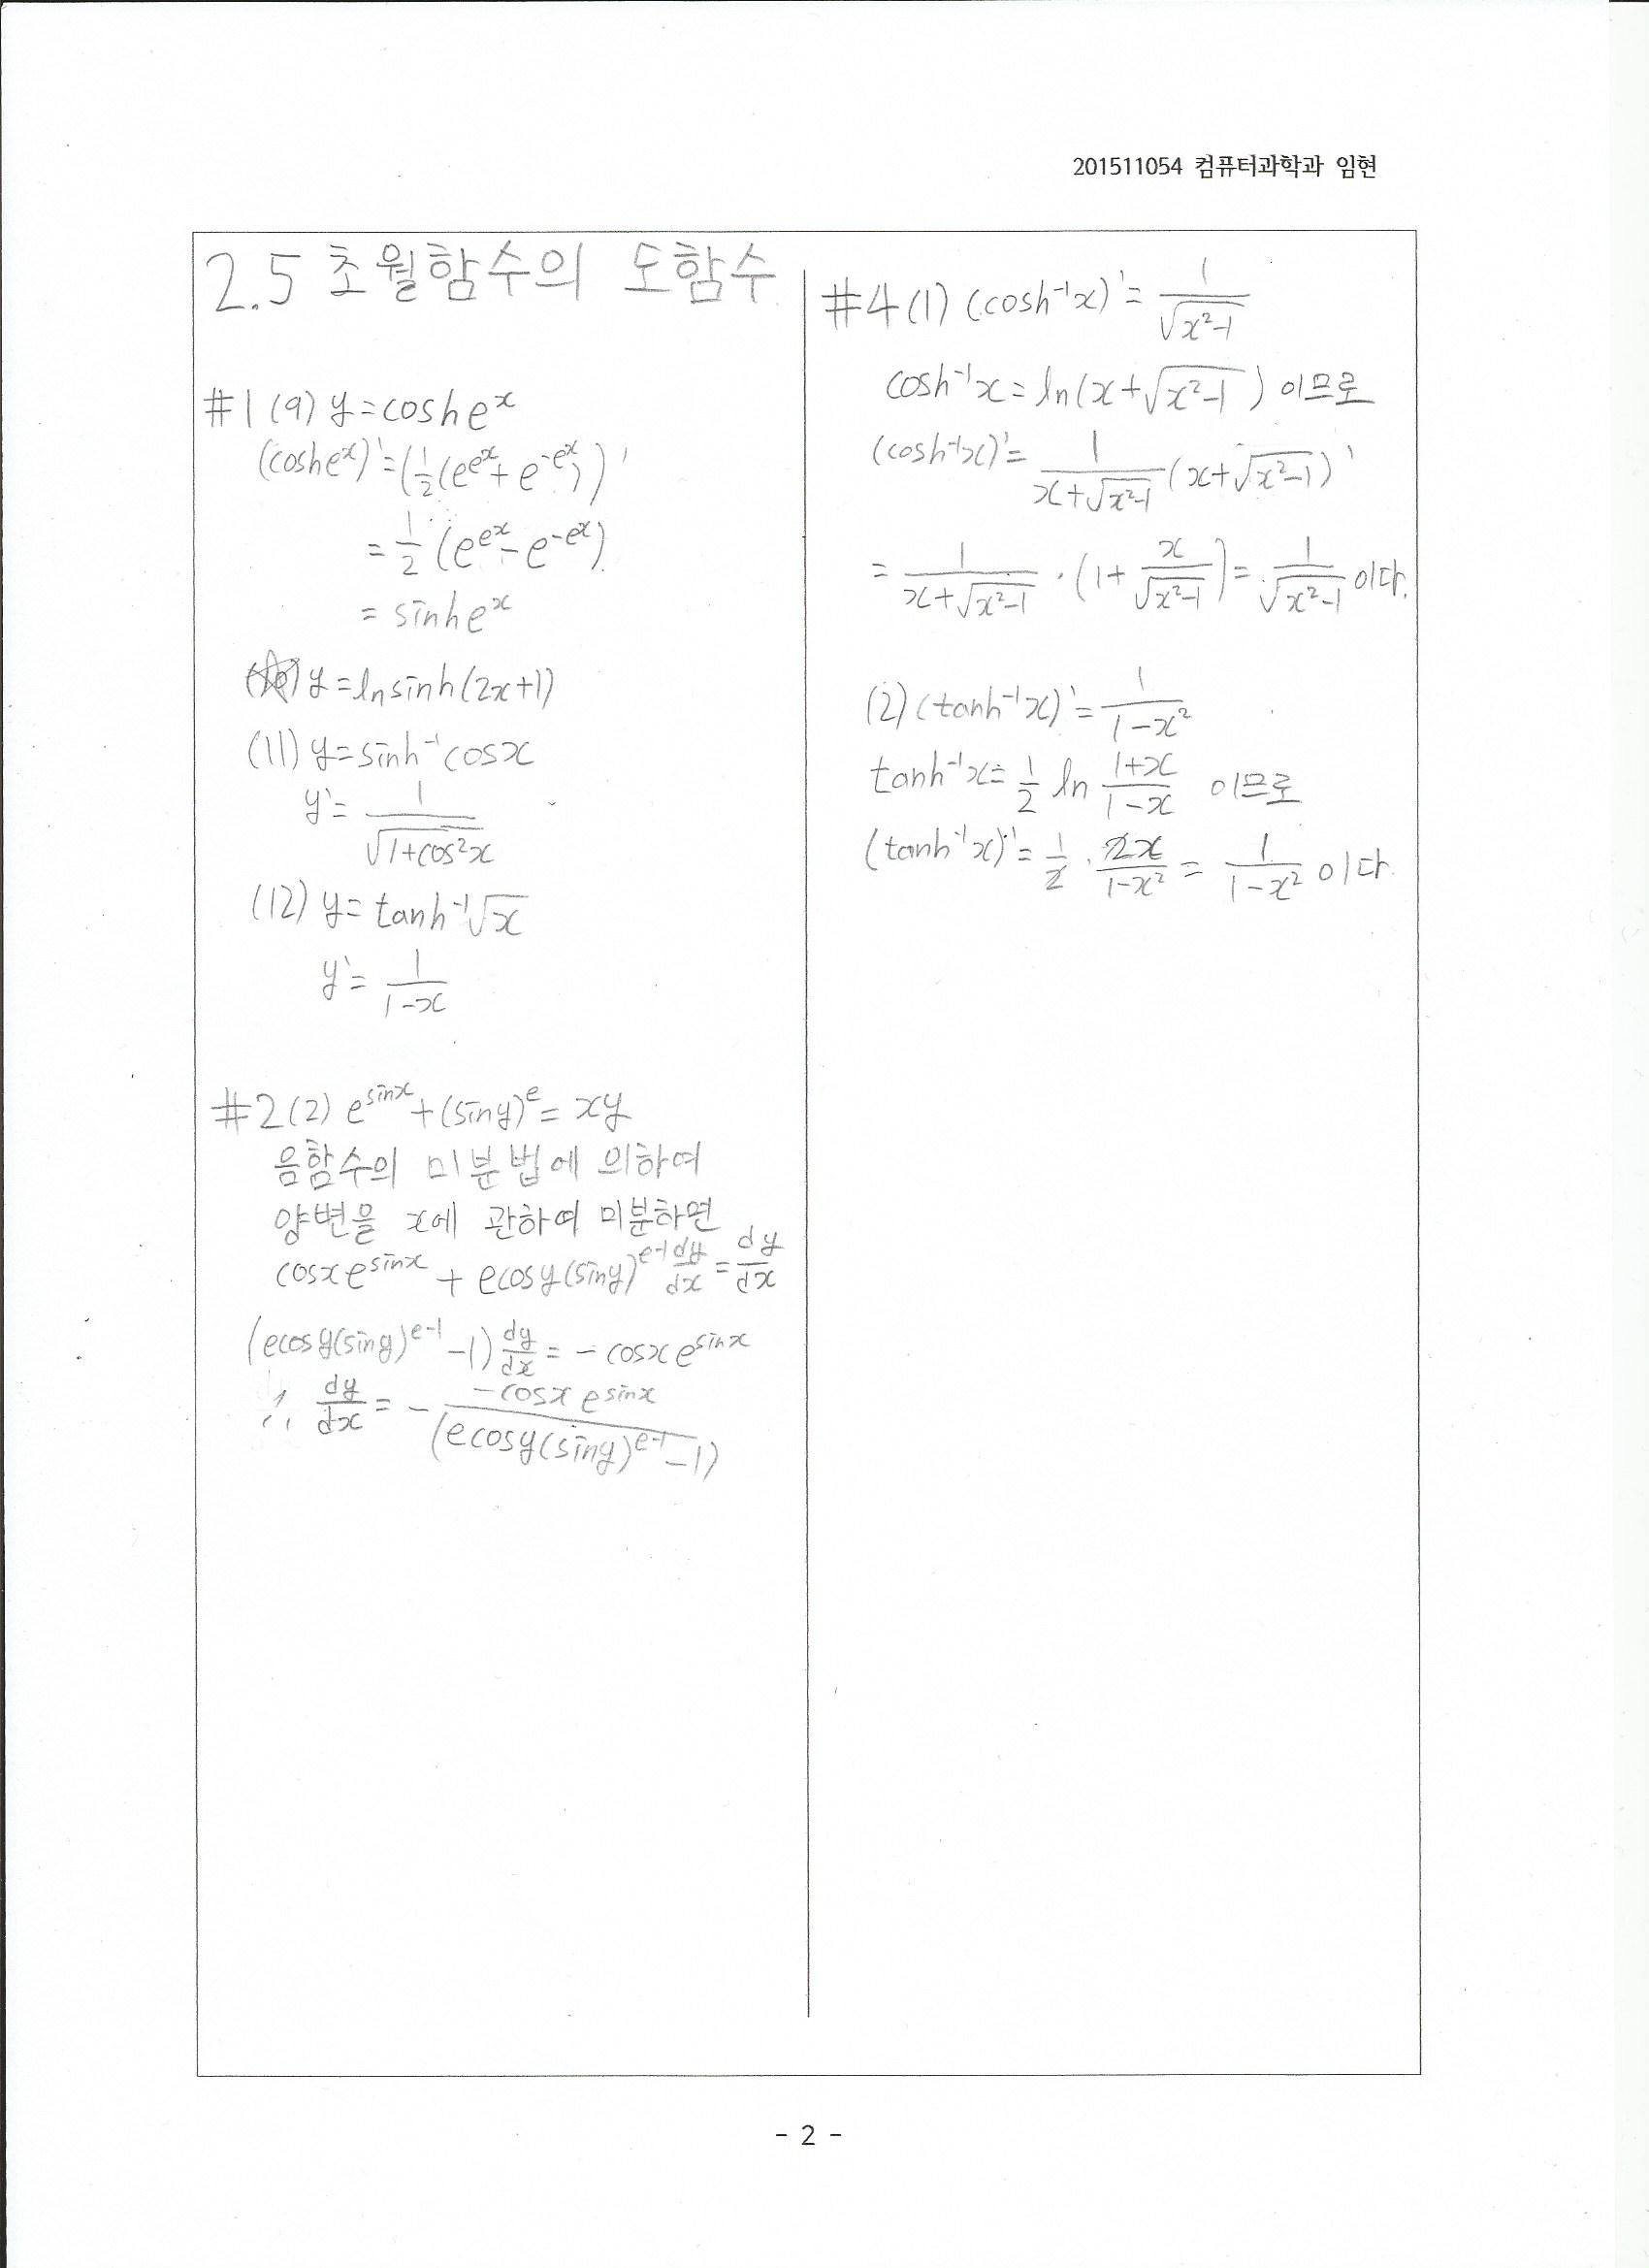 201511054 컴퓨터과학과 임현
2.5 초월함수의 도함수
#1 (9) y = cosh e^x
(cosh e^x)' = (1/2(e^{e^x} + e^{-e^x}))'
= 1/2 (e^{e^x} - e^{-e^x})
= sinh e^x
(10) y = ln sinh(2x+1)
(11) y = sinh^{-1} cosx
y' = 1/√(1+cos²x)
(12) y = tanh^{-1}√x
y' = 1/(1-x)
#2 (2) e^{sinx} + (siny)^e = xy
음함수의 미분법에 의하여
양변을 x에 관하여 미분하면
cosx e^{sinx} + e cosy (siny)^{e-1} dy/dx = dy/dx
(e cosy (siny)^{e-1} - 1) dy/dx = - cosx e^{sinx}
∴ dy/dx = - (-cosx e^{sinx})/(e cosy (siny)^{e-1} - 1)
#4 (1) (cosh^{-1}x)' = 1/√(x²-1)
cosh^{-1}x = ln(x+√(x²-1)) 이므로
(cosh^{-1}x)' = 1/(x+√(x²-1)) (x+√(x²-1))'
= 1/(x+√(x²-1)) · (1 + x/√(x²-1)) = 1/√(x²-1) 이다.
(2) (tanh^{-1}x)' = 1/(1-x²)
tanh^{-1}x = 1/2 ln (1+x)/(1-x) 이므로
(tanh^{-1}x)' = 1/2 · 2x/(1-x²) = 1/(1-x²) 이다
- 2 -